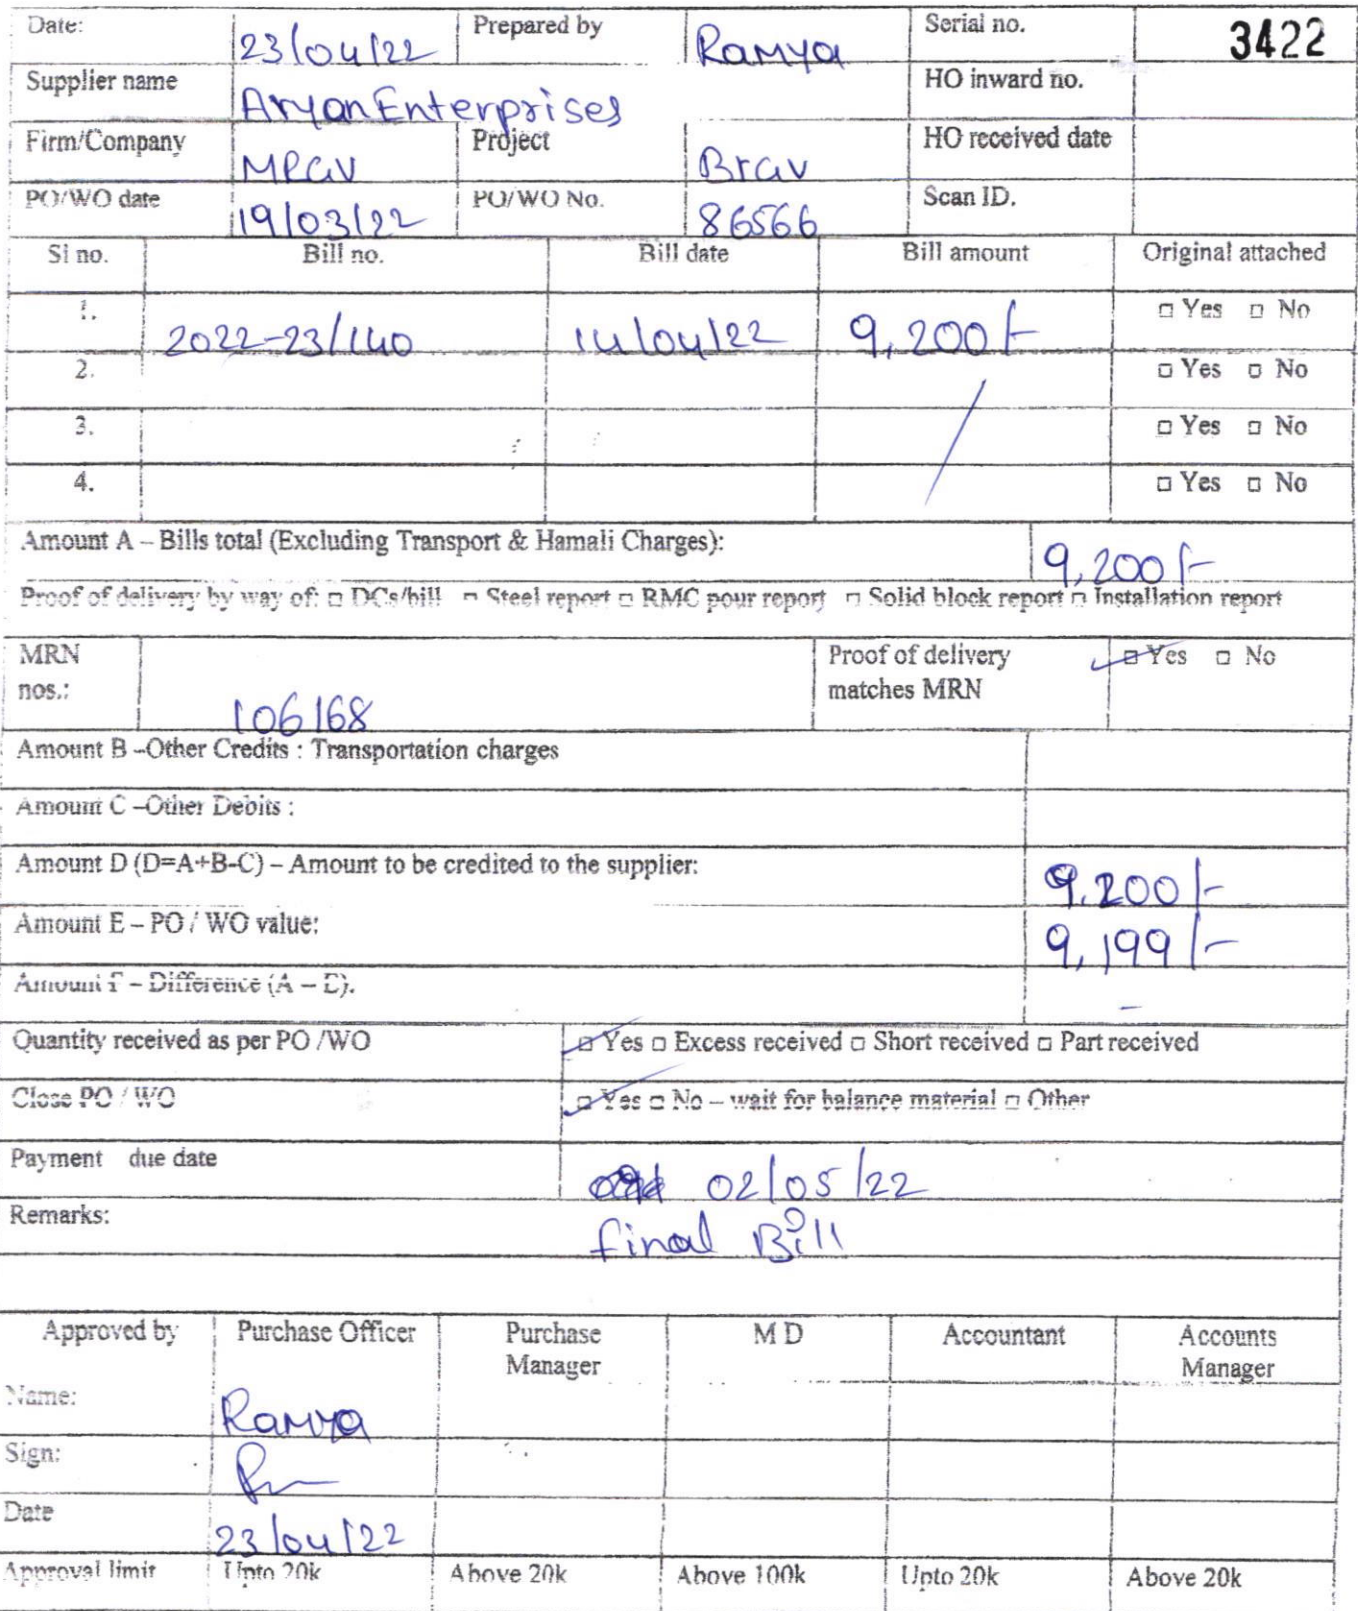 Date: 23/04/22 Prepared by Ramya Serial no. 3422
Supplier name Aryan Enterprises HO inward no.
Firm/Company MRGV Project BrGV HO received date
PO/WO date 19/03/22 PO/WO No. 86566 Scan ID.
Sl no. Bill no. Bill date Bill amount Original attached
1. 2022-23/140 14/04/22 9,200/- □ Yes □ No
2. □ Yes □ No
3. □ Yes □ No
4. □ Yes □ No
Amount A – Bills total (Excluding Transport & Hamali Charges): 9,200/-
Proof of delivery by way of: □ DCs/bill □ Steel report □ RMC pour report □ Solid block report □ Installation report
MRN nos.: 106168 Proof of delivery matches MRN □ Yes □ No
Amount B –Other Credits : Transportation charges
Amount C –Other Debits :
Amount D (D=A+B-C) – Amount to be credited to the supplier: 9,200/-
Amount E – PO / WO value: 9,199/-
Amount F – Difference (A – E). –
Quantity received as per PO /WO □ Yes □ Excess received □ Short received □ Part received
Close PO / WO □ Yes □ No – wait for balance material □ Other
Payment due date 02/05/22
Remarks: final Bill
Approved by Purchase Officer Purchase Manager M D Accountant Accounts Manager
Name: Ramya
Sign:
Date 23/04/22
Approval limit Upto 20k Above 20k Above 100k Upto 20k Above 20k